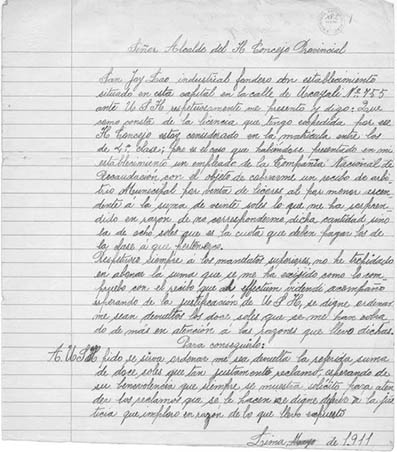 Señor Alcalde del H. Concejo Provincial
San Joy Lao industrial fondero con establecimiento
situado en esta capital en la calle de Ucayali Nº 755
ante U S H. respetuosamente me presento y digo: Que
como consta de la licencia que tengo expedida por ese
H Concejo estoy considerado en la matrícula entre los
de 4ª clase; y es el caso que habiéndose presentado en mi
establecimiento un empleado de la Compañia Nacional de
Recaudación con el objeto de cobrarme un recibo de arbi
trio Municipal por venta de licores al por menor ascen
dente á la suma de veinte soles lo que me ha sorpren
dido en razón de no corresponderme dicha cantidad sino
la de ocho soles que es la cuota que deben pagar los de
la clase á que pertenezco.
Respetuoso siempre á los mandatos superiores, no he trepidado
en abonar la suma que se me ha exijido como lo com
pruebo con el recibo que al efecto acompaño
esperando de la justificación de U S H, se digne ordenar
me sean devueltos los doce soles que se me han cobra
do de más en atención á las razones que llevo dichas.
Para conseguirlo:
A. U S H pido se sirva ordenar me sea devuelta la referida suma
de doce soles que tan justamente reclamo, esperando de
su benevolencia que siempre se muestra solícito para aten
der los reclamos que se le hacen se digne la jus
ticia que imploro en razón de lo que llevo expuesto
Lima, Mayo de 1911